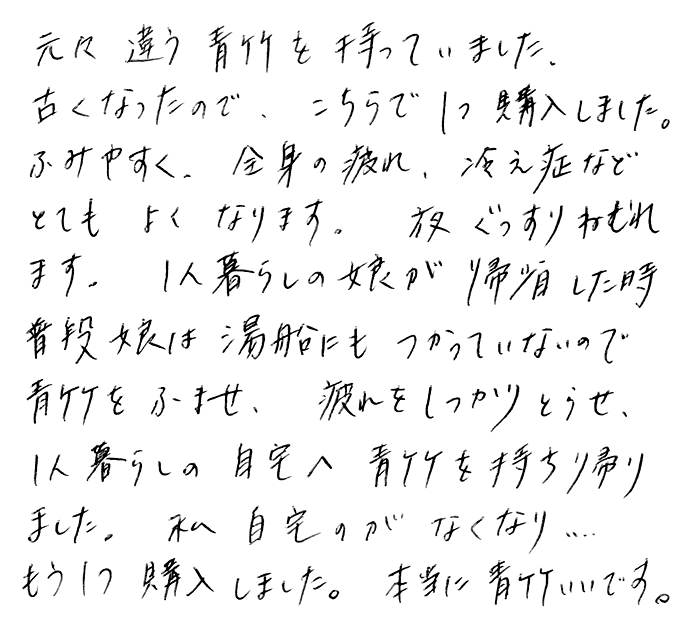 元々 違う 青竹を 持っていました、
古くなったので、こちらで 1つ 購入しました。
ふみやすく、全身の疲れ、冷え症など
とても よく なります。 夜 ぐっすりねむれ
ます。 1人暮らしの娘が 帰省した時
普段 娘は 湯船にも つかっていないので
青竹を ふませ、 疲れをしっかりとらせ、
1人暮らしの 自宅へ 青竹を持ち帰り
ました。 私 自宅のが なくなり….
もう1つ 購入しました。 本当に青竹いいです。